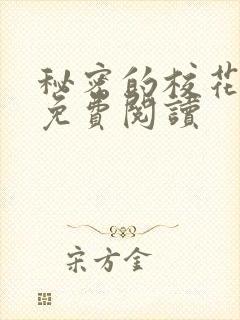 秘密的校花
免費閱讀
宋方金